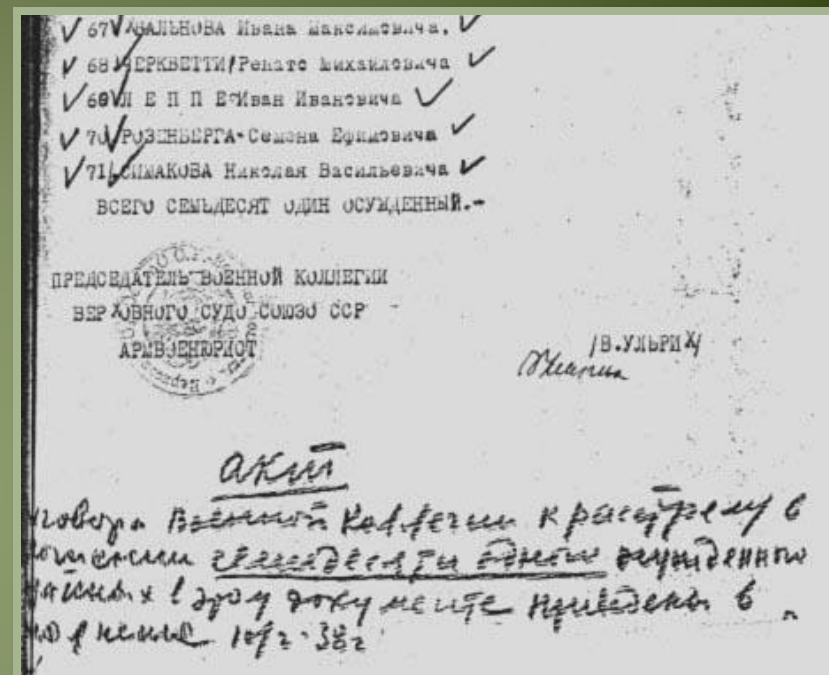 67 ВАЛЬНОВА Ивана Максимовича.
68 ЧЕРКВЕТТИ/Ренато Михайловича
69 Л Е П П Е Иван Ивановича
70 РОЗЕНБЕРГА Семена Ефимовича
71 СИМАКОВА Николая Васильевича
ВСЕГО СЕМЬДЕСЯТ ОДИН ОСУЖДЕННЫЙ.-
ПРЕДСЕДАТЕЛЬ ВОЕННОЙ КОЛЛЕГИИ
ВЕРХОВНОГО СУДО СОЮЗО ССР
АРМВОЕНЮРИСТ
/В.УЛЬРИХ/
акт
говора Военной Коллегии к расстрелу в
семидесяти одного осужденно
в этому документе приведены в